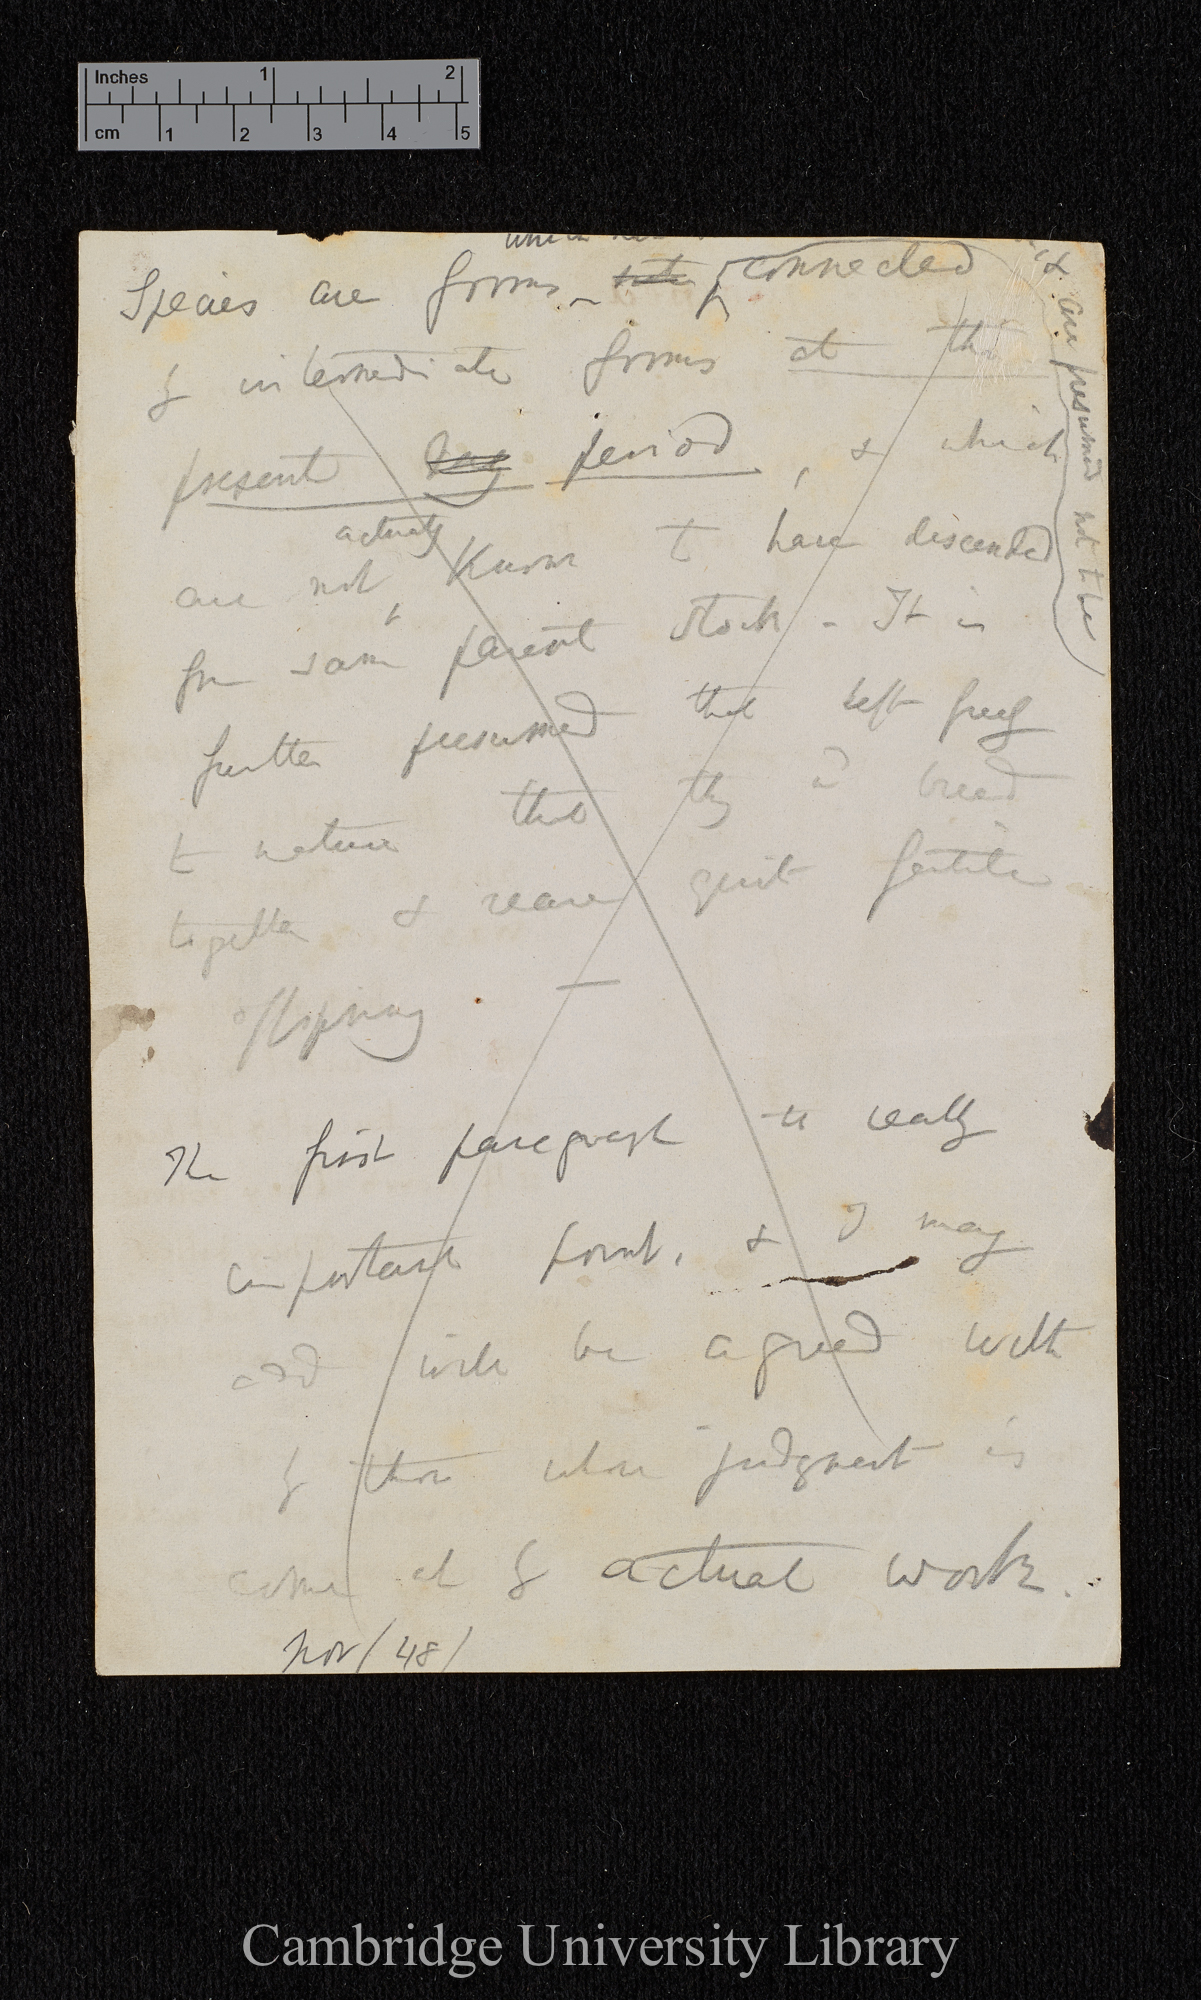 Inches 1 2
cm 1 2 3 4 5
Species are forms not connected & are presumed not to be
by intermediate forms at this
present day period, & which
actually
are not known to have descended
fm same parent stock. It is
further presumed that left freely
to nature that they wd breed
together & rear quite fertile
offspring —
The first paragraph is really
important point, & I may
add will be agreed with
by those whose judgment is
come at by actual work.
Nov/48/
Cambridge University Library